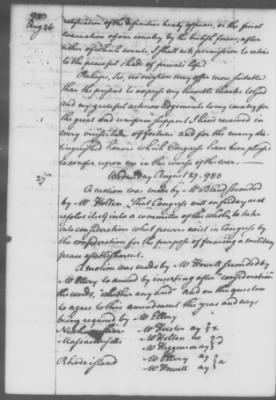 1783
Aug 26
ratification of the definitive treaty appears, or the final
evacuation of our country by the british forces, after
either of which events, I shall ask permission to retire
to the peaceful shade of private life.
Perhaps, Sir, no occasion may offer more suitable
than the present to express my humble thanks to God
and my grateful acknowledgments to my country for
the great and uniform support I have received in
every vicissitude of fortune and for the many dis-
tinguished honors which Congress have been pleased
to confer upon me in the course of the war.
27
Wednesday August 27. 1783
A motion was made by Mr Bland seconded
by Mr Holten, That Congress will on friday next
resolve itself into a committee of the whole, to take
into consideration what powers exist in Congress by
the confederation for the purpose of forming a military
peace establishment.
A motion was made by Mr Howell seconded by
Mr Ellery to amend by inserting after "confederation"
the words, "whether any and" and on the question
to agree to this amendment the yeas and nays
being required by Mr Ellery
New hampshire Mr Foster ay } x
Massachusetts Mr Holten no
Mr Higginson ay } d
Rhode island Mr Ellery ay
Mr Howell ay } a